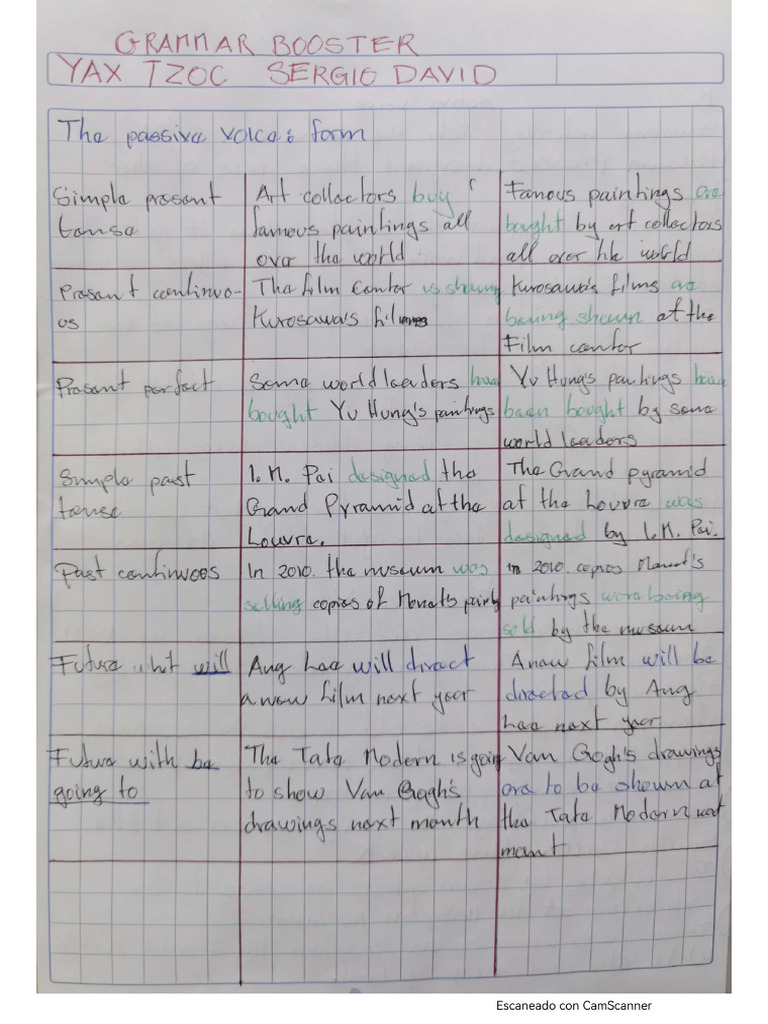 GRAMMAR BOOSTER
YAX TZOC SERGIO DAVID
The passive voice: form
Simple present
tense
Art collectors buy
famous paintings all
over the world
Famous paintings are
bought by art collectors
all over the world
Present continuo-
us
The film Center is showing
Kurosawa's films
Kurosawa's films are
being shown at the
Film center
Present perfect
Some world leaders have
bought Yu Hung's paintings
Yu Hung's paintings have
been bought by some
world leaders
Simple past
tense
I. M. Pei designed the
Grand Pyramid at the
Louvre.
The Grand pyramid
at the Louvre was
designed by I. M. Pei.
Past continuoes
In 2010. the museum was
selling copies of Monet's
In 2010. copies Monet's
paintings were being
sold by the museum
Future will
Ang Lee will direct
a new film next year
A new film will be
directed by Ang
Lee next year.
Future with be
going to
The Tate Modern is going
to show Van Gogh's
drawings next month
Van Gogh's drawings
are to be shown at
the Tate Modern
Escaneado con CamScanner